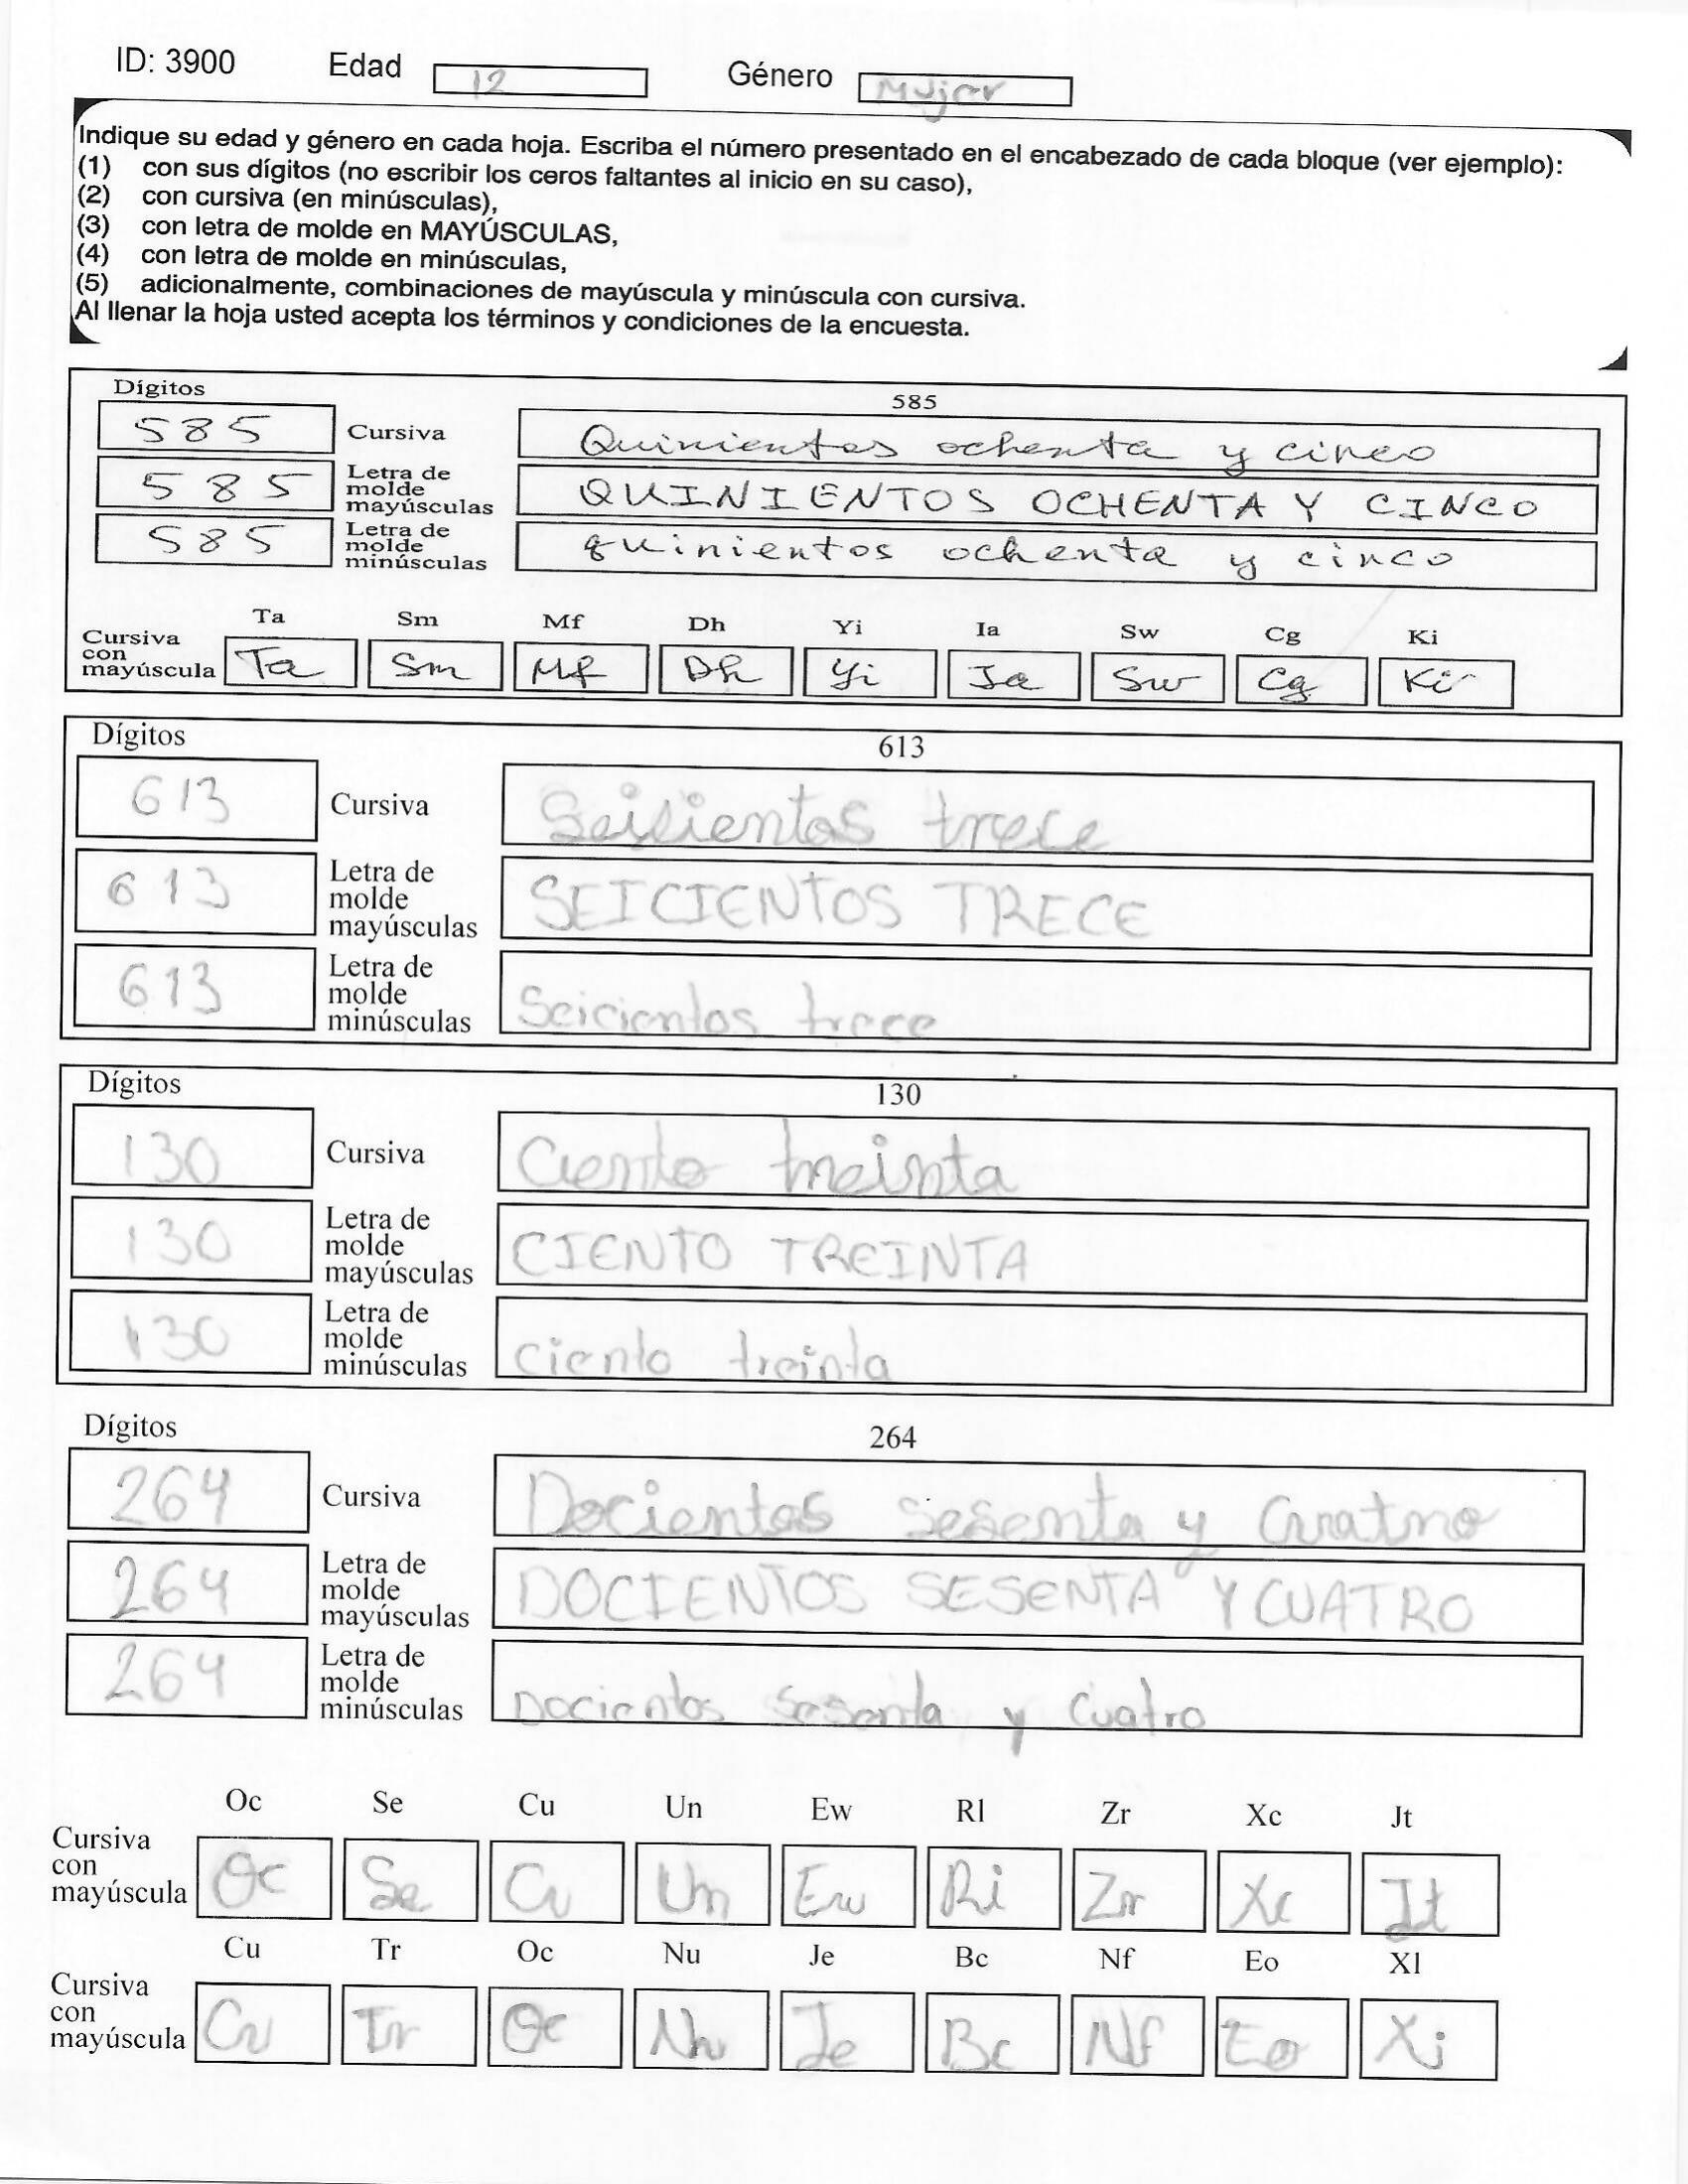 ID: 3900 Edad 12 Género Mujer
Indique su edad y género en cada hoja. Escriba el número presentado en el encabezado de cada bloque (ver ejemplo):
(1) con sus dígitos (no escribir los ceros faltantes al inicio en su caso),
(2) con cursiva (en minúsculas),
(3) con letra de molde en MAYÚSCULAS,
(4) con letra de molde en minúsculas,
(5) adicionalmente, combinaciones de mayúscula y minúscula con cursiva.
Al llenar la hoja usted acepta los términos y condiciones de la encuesta.
Dígitos 585
585 Cursiva Quinientos ochenta y cinco
585 Letra de molde mayúsculas QUINIENTOS OCHENTA Y CINCO
585 Letra de molde minúsculas quinientos ochenta y cinco
Ta Sm Mf Dh Yi Ia Sw Cg Ki
Cursiva con mayúscula Ta Sm Mf Dh Yi Ia Sw Cg Ki
Dígitos 613
613 Cursiva Seisientos trece
613 Letra de molde mayúsculas SEICIENTOS TRECE
613 Letra de molde minúsculas Seicientos trece
Dígitos 130
130 Cursiva Ciento treinta
130 Letra de molde mayúsculas CIENTO TREINTA
130 Letra de molde minúsculas Ciento treinta
Dígitos 264
264 Cursiva Docientos sesenta y Cuatro
264 Letra de molde mayúsculas DOCIENTOS SESENTA Y CUATRO
264 Letra de molde minúsculas Docientos sesenta y Cuatro
Oc Se Cu Un Ew Rl Zr Xc Jt
Cursiva con mayúscula Oc Se Cu Un Ew Ri Zr Xc Jt
Cu Tr Oc Nu Je Bc Nf Eo Xl
Cursiva con mayúscula Cu Tr Oc Nu Je Bc Nf Eo Xi